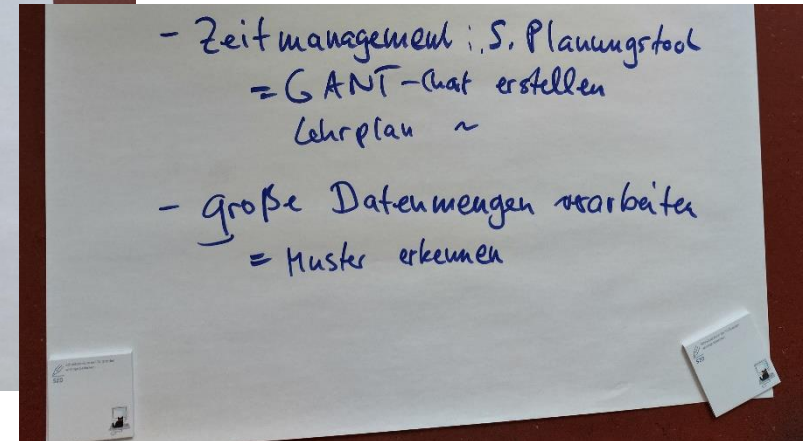 - Zeitmanagement i.S. Planungstool
= GANT-Chat erstellen
Lehrplan ~
- große Datenmengen verarbeiten
= Muster erkennen